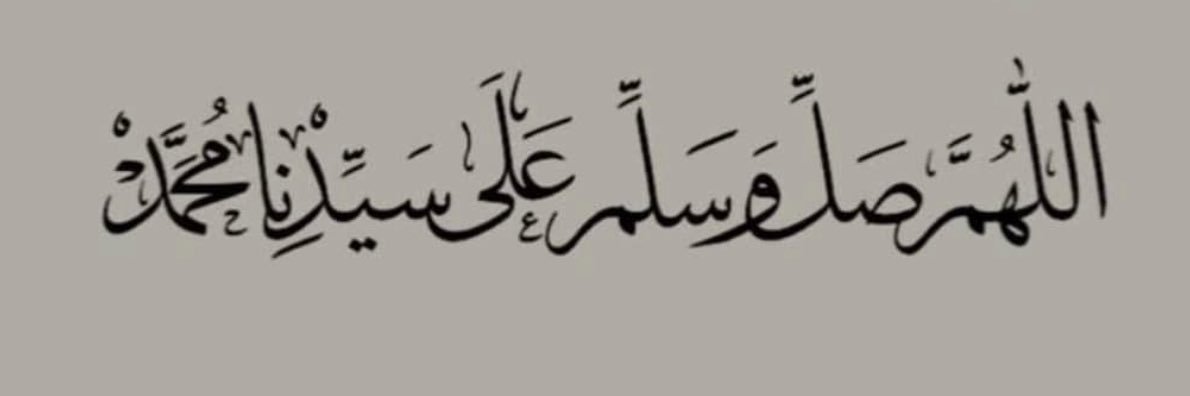 اللَّهُمَّ صَلِّ وَسَلِّمْ عَلَى سَيِّدِنَا مُحَمَّدْ